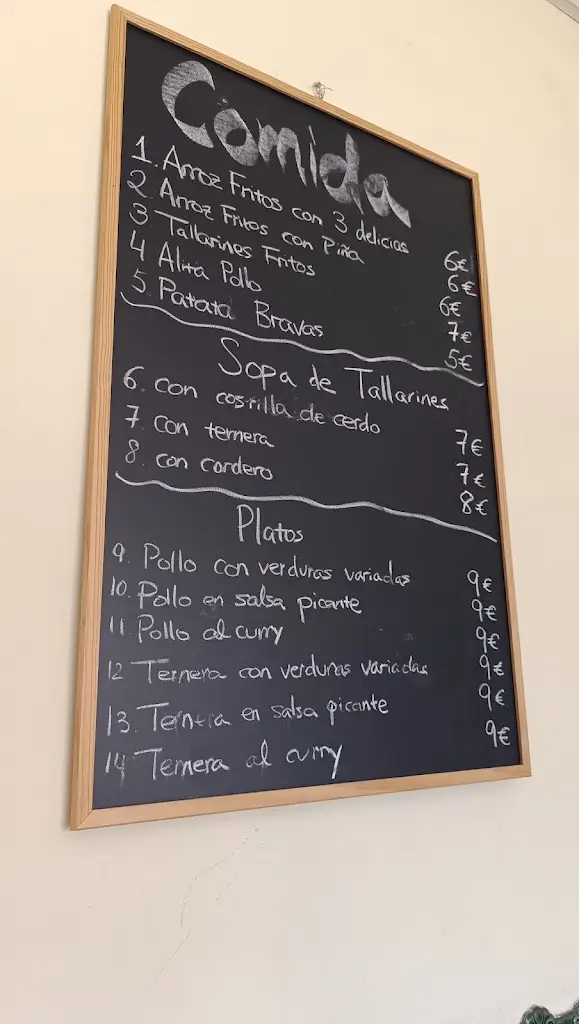 Comida
1. Arroz Fritos con 3 delicias 6€
2 Arroz Fritos con Piña 6€
3 Tallarines Fritos 6€
4 Alita Pollo 7€
5. Patata Bravas 5€
Sopa de Tallarines
6. con costilla de cerdo 7€
7. con ternera 7€
8. con cordero 8€
Platos
9. Pollo con verduras variadas 9€
10. Pollo en salsa picante 9€
11. Pollo al curry 9€
12 Ternera con verduras variadas 9€
13. Ternera en salsa picante 9€
14 Ternera al curry 9€